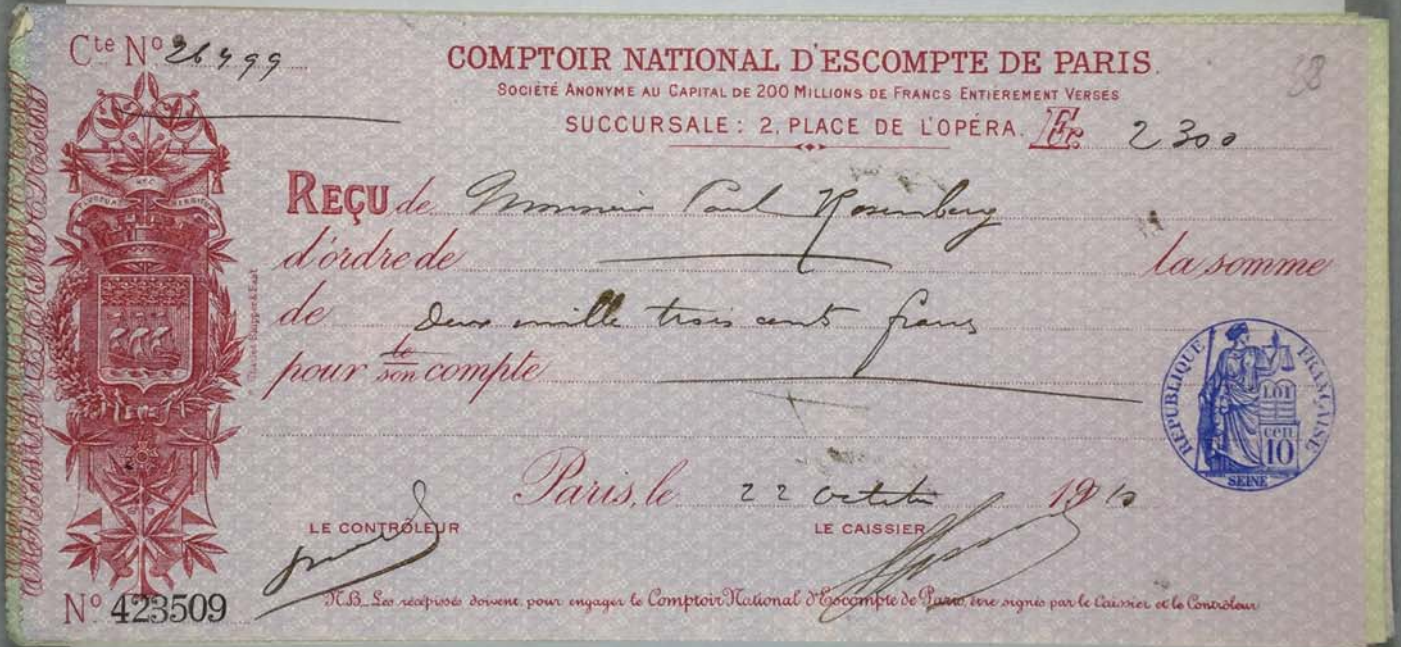 Cte No. 26499
COMPTOIR NATIONAL D'ESCOMPTE DE PARIS.
SOCIÉTÉ ANONYME AU CAPITAL DE 200 MILLIONS DE FRANCS ENTIÈREMENT VERSÉS
SUCCURSALE : 2, PLACE DE L'OPÉRA. Fr. 2300
REÇU de Monsieur Paul Rosenberg
d'ordre de la somme
de deux mille trois cents francs
pour le son compte
RÉPUBLIQUE FRANÇAISE
LOI
cen
10
SEINE
Paris, le 22 octobre 1910
LE CONTRÔLEUR LE CAISSIER
No 423509
N.B. Les récépissés doivent, pour engager le Comptoir National d'Escompte de Paris, être signés par le Caissier et le Contrôleur